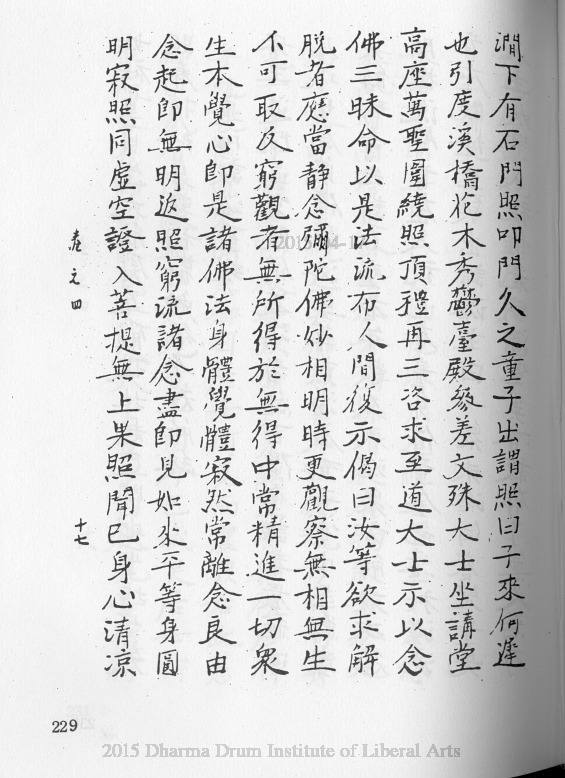 澗下有石門照叩門久之童子出謂照曰子來何遲
也引度溪橋花木秀鬱臺殿參差文殊大士坐講堂
高座萬聖圍繞照頂禮再三咨求至道大士示以念
佛三昧命以是法流布人間復示偈曰汝等欲求解
脫者應當靜念彌陀佛妙相明時更觀察無相無生
不可取反窮觀者無所得於無得中常精進一切衆
生本覺心即是諸佛法身體覺體寂然常離念良由
念起即無明返照窮流諸念盡即見如來平等身圓
明寂照同虛空證入菩提無上果照聞已身心清凉
十七
229
2015 Dharma Drum Institute of Liberal Arts